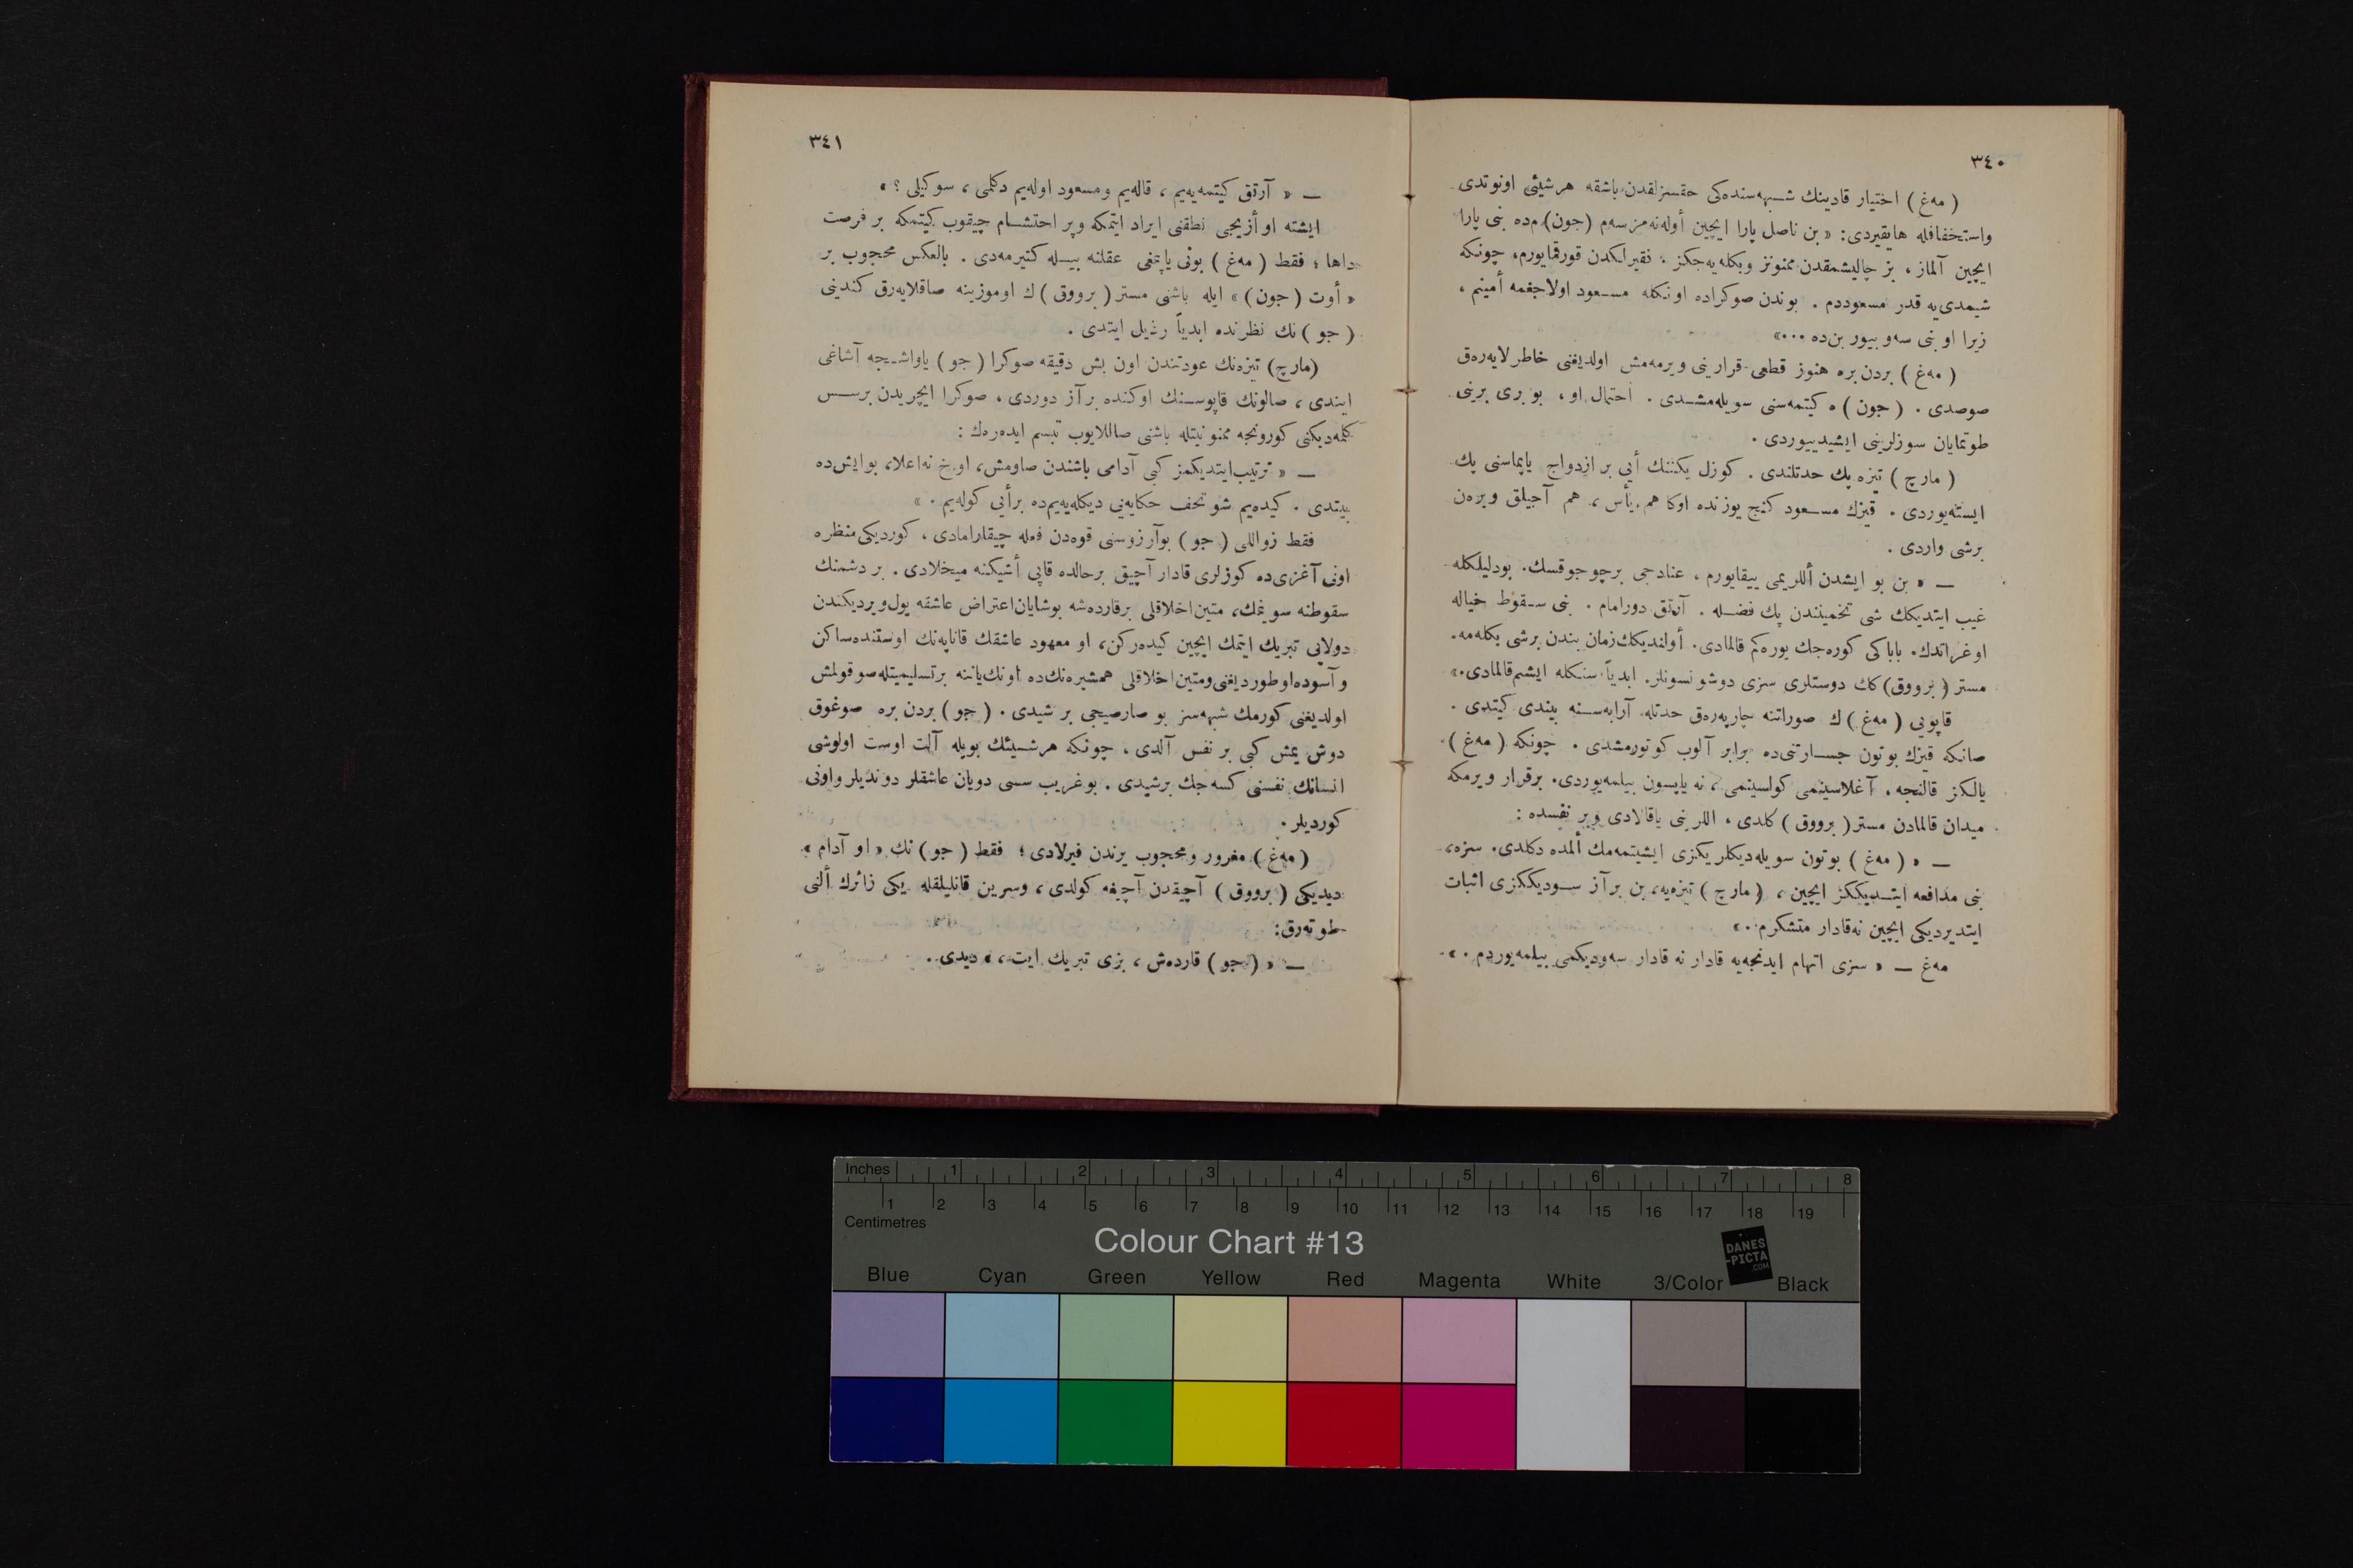 ٣٤٠
( مه‌غ ) اختيار قادينك شبهه‌سنده‌كى حقسزلقدن باشقه هر شيئى اونوتدى
واستخفافله هايقيردى: « بن ناصل پارا ايچين أوله‌نه‌مزسه‌م (جون) ده بنى پارا
ايچين آلماز ، بز چاليشمقدن ممنونز وبكله‌يه‌جكز . فقيرلكدن قورقمايورم، چونكه
شيمدى‌يه قدر مسعوددم . بوندن صوكراده اونكله مسعود اولاجغمه أمينم ،
زيرا او بنى سه‌وييور بن‌ده ...»
( مه‌غ ) بردن بره هنوز قطعى قرارينى ويرمه‌مش اولديغنى خاطرلايه‌رق
صوصدى . ( جون ) ه كيتمه‌سنى سويله‌مشدى . احتمال او ، بو برى برينى
طوتمايان سوزلرينى ايشيدييوردى .
( مارچ ) تيزه پك حدتلندى . كوزل يكننك أيى بر ازدواج ياپماسنى پك
ايسته‌يوردى . قيزك مسعود كنج يوزنده اوكا هم يأس ، هم آجيلق ويره‌ن
برشى واردى .
— « بن بو ايشدن أللريمى ييقايورم ، عنادجى برچوجوقسك. بودليلكله
غيب ايتديكك شى تخمينندن پك فضله . آرتق دورامام . بنى سقوط خياله
اوغراتدك. باباكى كوره‌جك يوره‌كم قالمادى. أولنديكك زمان بندن برشى بكله‌مه.
مستر ( برووق) كك دوستلرى سزى دوشونسونلر. ابدياً سنكله ايشم قالمادى.»
قاپويى ( مه‌غ ) ك صوراتنه چارپه‌رق حدتله آرابه‌سنه بيندى كيتدى .
صانكه قيزك بوتون جسارتنى‌ده برابر آلوب كوتورمشدى . چونكه ( مه‌غ )
يالكز قالنجه ، آغلاسينمى كولسينمى ، نه ياپسون بيلمه‌يوردى. برقرار ويرمكه
ميدان قالمادن مستر ( برووق ) كلدى ، اللرينى ياقالادى وبر نفسده :
— « ( مه‌غ ) بوتون سويله‌ديكلريكزى ايشيتمه‌مك ألمده دكلدى. سزه،
بنى مدافعه ايتديككز ايچين ، ( مارچ ) تيزه‌يه، بن برآز سوديككزى اثبات
ايتديرديكى ايچين نه‌قادار متشكرم .»
مه‌غ — « سزى اتهام ايدنجه‌يه قادار نه قادار سه‌وديكمى بيلمه‌يوردم . »
٣٤١
— « آرتق كيتمه‌يه‌يم ، قاله‌يم ومسعود اوله‌يم دكلمى ، سوكيلى ؟ »
ايشته او أزيجى نطقنى ايراد ايتمكه وپر احتشام چيقوب كيتمكه بر فرصت
داها ؛ فقط ( مه‌غ ) بونى ياپمغى عقلنه بيله كتيرمه‌دى . بالعكس محجوب بر
« أوت ( جون ) » ايله باشنى مستر ( برووق ) ك اوموزينه صاقلايه‌رق كندينى
( جو ) نك نظرنده ابدياً رذيل ايتدى .
(مارچ) تيزه‌نك عودتندن اون بش دقيقه صوكرا ( جو ) ياواشجه آشاغى
ايندى ، صالونك قاپوسنك اوكنده برآز دوردى ، صوكرا ايچريدن برسس
كلمه‌ديكنى كورونجه ممنونيتله باشنى صاللايوب تبسم ايده‌ره‌ك :
— « ترتيب ايتديكمز كبى آدامى باشندن صاومش، اوخ نه‌اعلا، بوايش‌ده
بيتدى . كيده‌يم شو تحف حكايه‌يى ديكله‌يه‌يم‌ده برأيى كوله‌يم . »
فقط زواللى ( جو ) بوآرزوسنى قوه‌دن فعله چيقارامادى ، كورديكى منظره
اونى آغزى‌ده كوزلرى قادار آچيق برحالده قاپى أشيكنه ميخلادى . بر دشمنك
سقوطنه سوينمك، متين‌اخلاقلى برقارده‌شه بوشايان‌اعتراض عاشقه يول‌ويرديكندن
دولايى تبريك ايتمك ايچين كيده‌ركن، او معهود عاشقك قاناپه‌نك اوستنده‌ساكن
و آسوده‌اوطورديغنى‌ومتين‌اخلاقلى همشيره‌نك‌ده اونك‌ياننه برتسليميتله‌صوقولمش
اولديغنى كورمك شبهه‌سز بو صارصيجى بر شيدى . ( جو ) بردن بره صوغوق
دوش يمش كبى بر نفس آلدى ، چونكه هرشيئك بويله آلت اوست اولوشى
انسانك نفسنى كسه‌جك برشيدى . بوغريب سسى دويان عاشقلر دونديلر واونى
كورديلر .
( مه‌غ ) مغرور ومحجوب يرندن فيرلادى ؛ فقط ( جو ) نك « او آدام »
ديديكى ( برووق ) آچيقدن آچيغه كولدى ، وسرين قانليلقله يكى زائرك ألنى
طوته‌رق:
— « ( جو ) قارده‌ش ، بزى تبريك ايت ، » ديدى .
Inches 1 2 3 4 5 6 7 8
1 2 3 4 5 6 7 8 9 10 11 12 13 14 15 16 17 18 19
Centimetres
Colour Chart #13
DANES
-PICTA
.COM
Blue Cyan Green Yellow Red Magenta White 3/Color Black